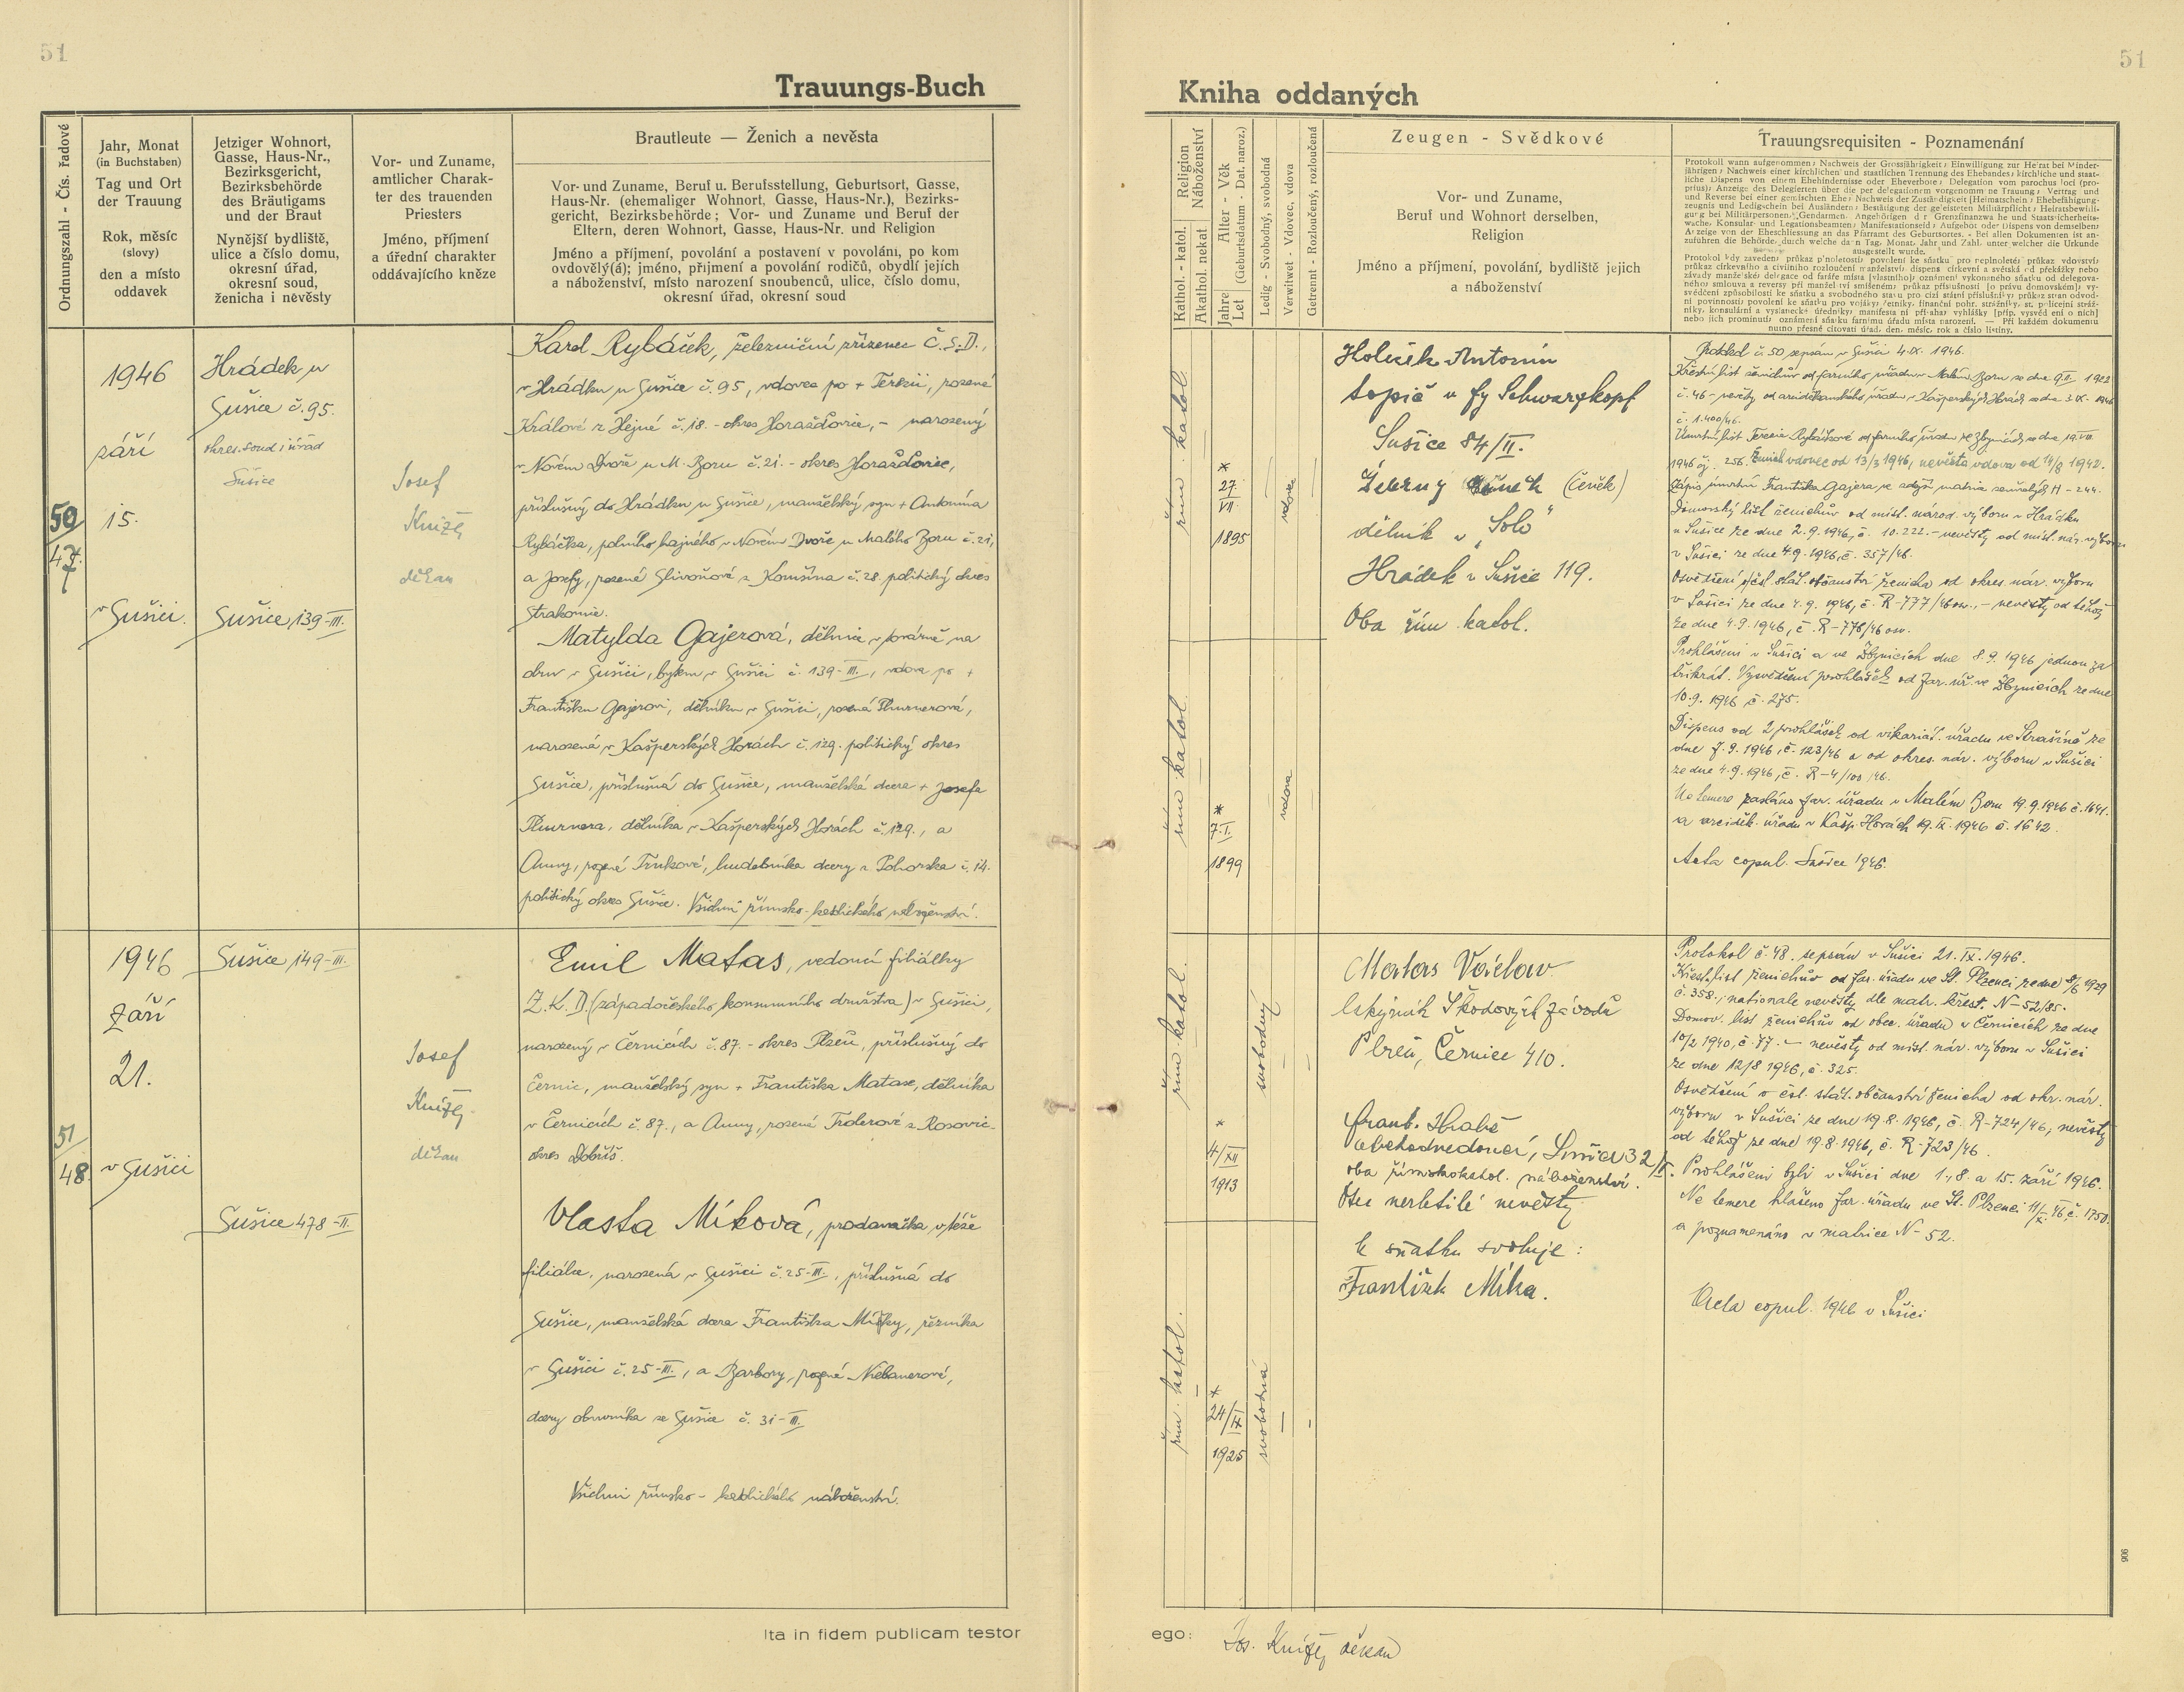 51
51
Trauungs-Buch
Kniha oddaných
Ordnungszahl - Čís. řadové
Jahr, Monat
(in Buchstaben)
Tag und Ort
der Trauung
Rok, měsíc
(slovy)
den a místo
oddavek
Jetziger Wohnort,
Gasse, Haus-Nr.,
Bezirksgericht,
Bezirksbehörde
des Bräutigams
und der Braut
Nynější bydliště,
ulice a číslo domu,
okresní úřad,
okresní soud,
ženicha i nevěsty
Vor- und Zuname,
amtlicher Charak-
ter des trauenden
Priesters
Jméno, příjmení
a úřední charakter
oddávajícího kněze
Brautleute — Ženich a nevěsta
Vor- und Zuname, Beruf u. Berufsstellung, Geburtsort, Gasse,
Haus-Nr. (ehemaliger Wohnort, Gasse, Haus-Nr.), Bezirks-
gericht, Bezirksbehörde; Vor- und Zuname und Beruf der
Eltern, deren Wohnort, Gasse, Haus-Nr. und Religion
Jméno a příjmení, povolání a postavení v povolání, po kom
ovdovělý(á); jméno, příjmení a povolání rodičů, obydlí jejich
a náboženství, místo narození snoubenců, ulice, číslo domu,
okresní úřad, okresní soud
Religion
Náboženství
Kathol. - katol.
Akathol. nekat
Alter - Věk
(Geburtsdatum - Dat. naroz.)
Jahre
Let
Ledig - Svobodný, svobodná
Verwitwet - Vdovec, vdova
Getrennt - Rozloučený, rozloučená
Zeugen - Svědkové
Vor- und Zuname,
Beruf und Wohnort derselben,
Religion
Jméno a příjmení, povolání, bydliště jejich
a náboženství
Trauungsrequisiten - Poznamenání
50
47.
1946
září
15.
v Sušici.
Hrádek u
Sušice č.95.
okres. soud i úřad
Sušice
Sušice 139-III.
Josef
Knížej
děkan
Karel Rybáček, železniční zřízenec Č.S.D.,
v Hrádku u Sušice č.95, vdovec po + Terezii, rozené
Králové z Hejné č.18. - okres Horažďovice, - narozený
v Novém Dvoře u M. Boru č.21. - okres Horažďovice,
příslušný do Hrádku u Sušice, manželský syn + Antonína
Rybáčka, polního hajného v Novém Dvoře u Malého Boru č.21,
a Josefy, rozené Slivoňové z Komšína č.28. politický okres
Strakonice.
Matylda Gajerová, dělnice v továrně na
obuv v Sušici, bytem v Sušici č. 139-III., vdova po +
Františku Gajerovi, dělníku v Sušici, rozená Thurnerová,
narozená v Kašperských Horách č.129. politický okres
Sušice, příslušná do Sušice, manželská dcera + Josefa
Thurnera, dělníka v Kašperských Horách č.129., a
Anny, rozené hudebníka dcery z č.14.
politický okres Sušice. Všichni římsko-katolického náboženství.
řím. katol.
*
27.
VII.
1895
vdovec
řím. katol.
*
7.I.
1899
vdova
Holeček Antonín
topič u fy Schwarzkopf
Sušice 84/II.
Žebrný (Čeněk)
dělník v „Solo"
Hrádek u Sušice 119.
Oba řím. katol.
Protokol č.50 sepsán v Sušici 4.IX. 1946.
č. 1.400/46.
v Sušici ze dne 4.9.1946, č. 357/46.
Osvědčení o čsl. stát. občanství ženicha od okres. nár. výboru
v Sušici ze dne 4.9. 1946, č. R-777/46 osv., - nevěsty od téhož
ze dne 4.9.1946, č. R-778/46 osv.
Prohlášení v Sušici a ve Zbynicích dne 8.9.1946 jednou za
třikrát. Vysvědčení prohlášek od far. úř. ve Zbynicích ze dne
10.9.1946 č. 275.
Dispens od 2 prohlášek od vikariát. úřadu ve Strašíně ze
dne 7.9.1946, č. 123/46 a od okres. nár. výboru v Sušici
ze dne 4.9.1946, č. R-4/100/46.
Ne temere zasláno far. úřadu v Malém Boru 19.9.1946 č.1641.
a arciděk. úřadu v Kašp. Horách 19.IX.1946 č. 1642.
Acta copul. Sušice 1946.
51
48.
1946
Září
21.
v Sušici
Sušice 149-III.
Sušice 478-II.
Josef
Knížej
děkan
Emil Matas, vedoucí filiálky
Z.K.D. (západočeského konsumního družstva) v Sušici,
narozený v Černicích č.87. - okres Plzeň, příslušný do
Černic, manželský syn + Františka Matase, dělníka
v Černicích č.87., a Anny, rozené z Rosovic -
okres Dobříš.
Vlasta Míková, prodavačka v téže
filiálce, narozená v Sušici č.25-III., příslušná do
Sušice, manželská dcera Františka Míky, řezníka
v Sušici č.25-III., a Barbory, rozené Niebauerové,
dcery obuvníka ze Sušice č. 31-III.
Všichni římsko-katolického náboženství.
řím. katol.
*
4/XII
1913
svobodný
řím. katol.
*
24/IX
1925
svobodná
Matas Václav
lakýrník Škodových závodů
Plzeň, Černice 410.
Frant. Hrabě
obchodvedoucí, Sušice 32/I.
oba římskokatol. náboženství.
Otec nezletilé nevěsty
k sňatku svoluje:
František Míka.
Protokol č.48. sepsán v Sušici 21.IX.1946.
Křest. list ženichův od far. úřadu ve St. Plzenci ze dne 8/6 1929
č.358.; nationale nevěsty dle matr. křest. N-52/85.
Domov. list ženichův od obec. úřadu v Černicích ze dne
10/2 1940, č.77. - nevěsty od míst. nár. výboru v Sušici
ze dne 12/8 1946, č. 325.
Osvědčení o čsl. stát. občanství ženicha od okr. nár.
výboru v Sušici ze dne 19.8.1946, č. R-724/46; nevěsty
od téhož ze dne 19.8.1946, č. R-723/46.
Prohlášeni byli v Sušici dne 1., 8. a 15. září 1946.
Ne temere hlášeno far. úřadu ve St. Plzenci 11/X.46 č. 1750.
a poznamenáno v matrice N-52.
Acta copul. 1946 v Sušici
Ita in fidem publicam testor
ego:
Jos. Knížej děkan
906